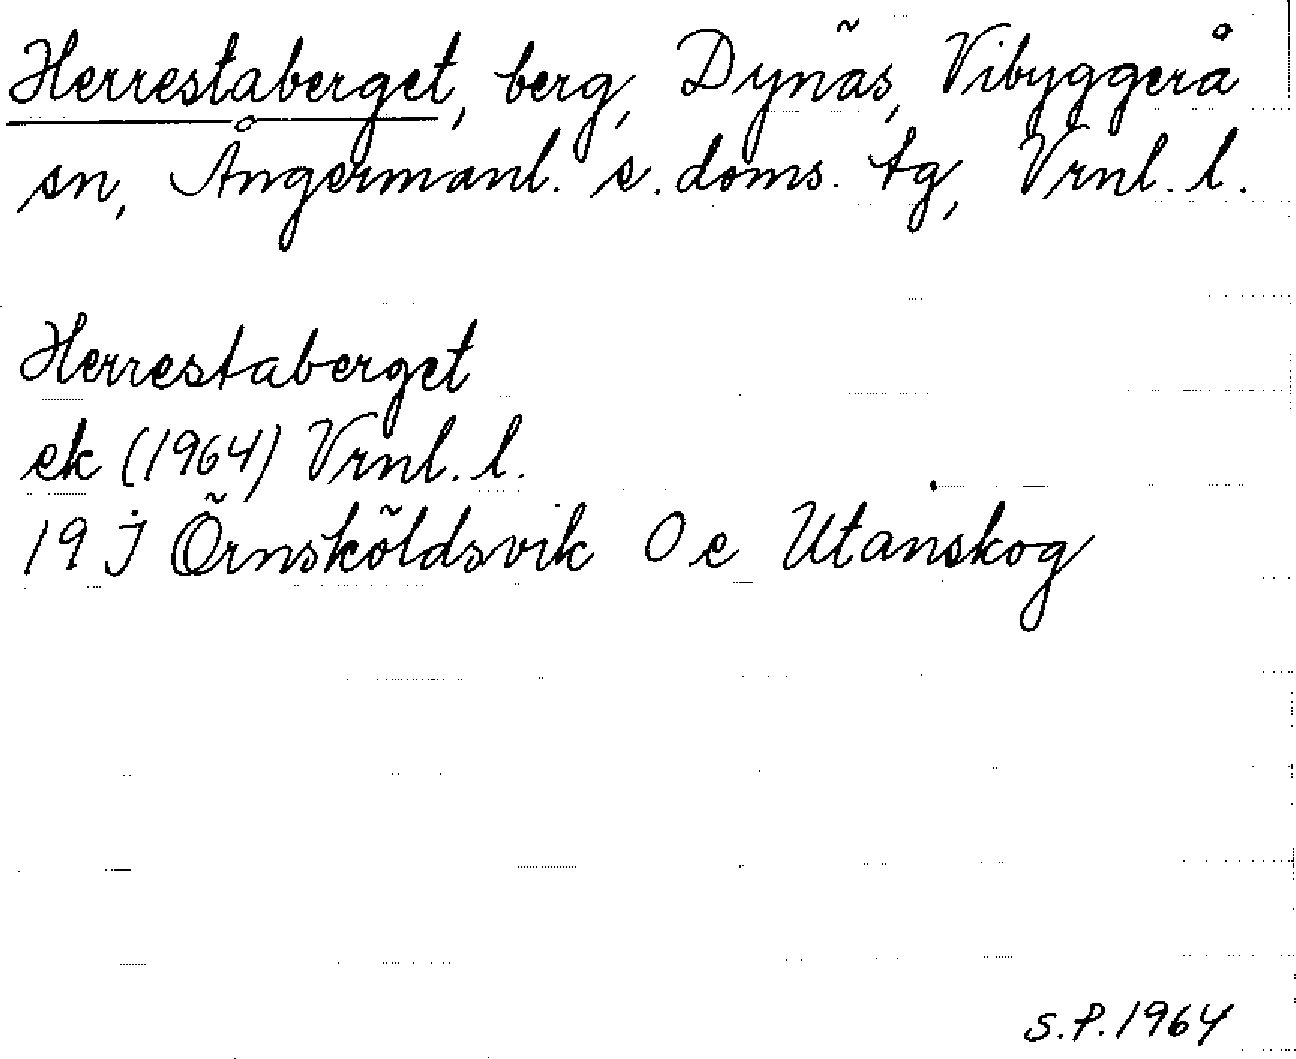 Herrestaberget, berg, Dynäs, Vibyggerå
sn, Ångermanl. s. doms. tg, Vrnl. l.
Herrestaberget
ek (1964) Vrnl. l.
19 J Örnsköldsvik 0 e Utanskog
S.P. 1964